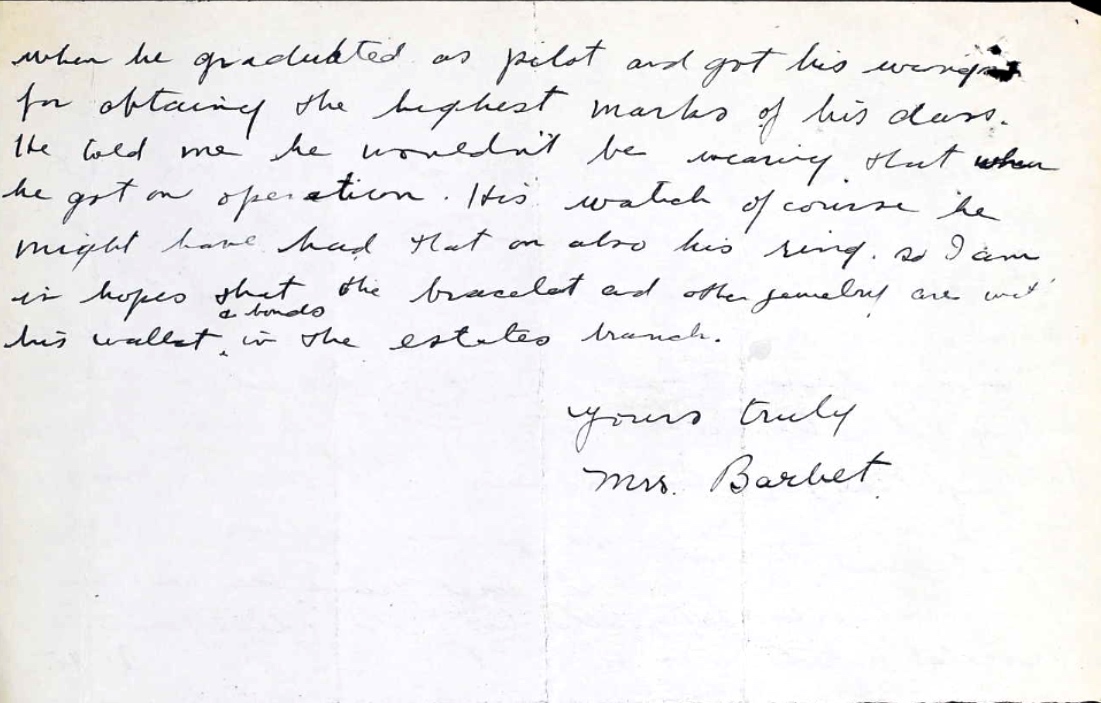 when he graduated as pilot and got his wings
for obtaining the highest marks of his class.
He told me he wouldn't be wearing that when
he got on operation. His watch of course he
might have had that on also his ring. so I am
in hopes that the bracelet and other jewelry are with
& bonds
his wallet in the estates branch.
yours truly
Mrs. Barbet